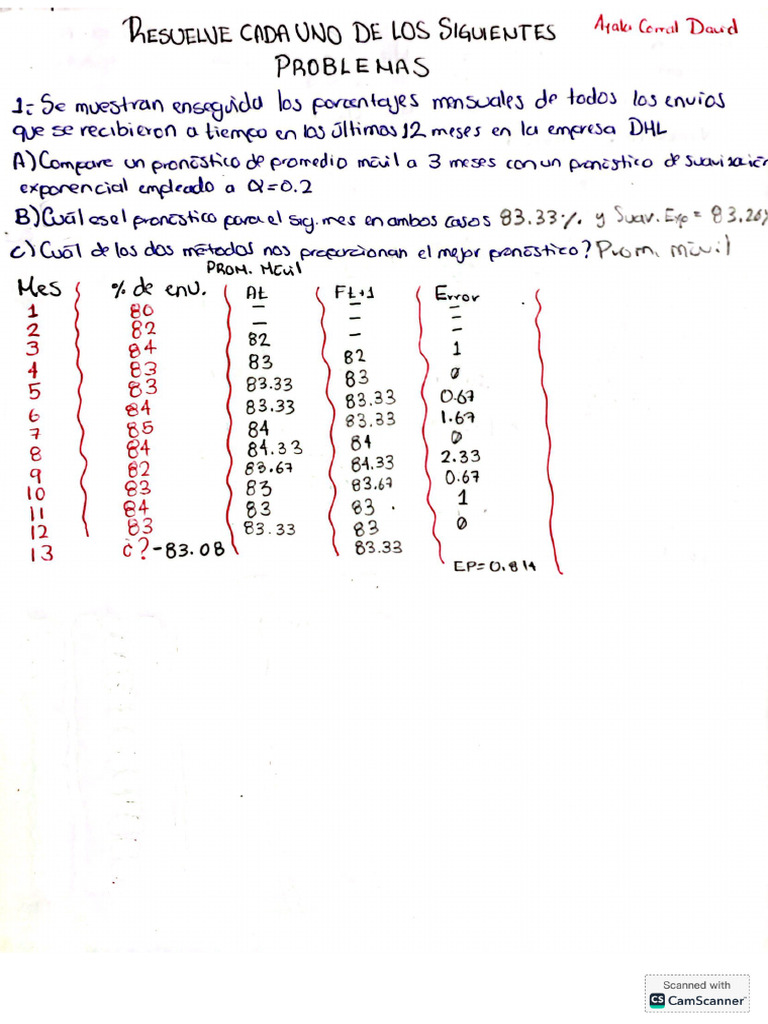 RESUELVE CADA UNO DE LOS SIGUIENTES
PROBLEMAS
Ayala Corral David
1.- Se muestran enseguida los porcentajes mensuales de todos los envios
que se recibieron a tiempo en los últimos 12 meses en la empresa DHL
A) Compare un pronóstico de promedio móvil a 3 meses con un pronóstico de suavización
exponencial empleado a α=0.2
B) Cuál es el pronóstico para el sig. mes en ambos casos 83.33%. y Suav. Exp = 83.26%
c) Cuál de los dos métodos nos proporcionan el mejor pronóstico? Prom. móvil
PROM. Móvil
Mes % de env. At Ft+1 Error
1 80 — — —
2 82 — — —
3 84 82 — —
4 83 83 82 1
5 83 83.33 83 0
6 84 83.33 83.33 0.67
7 85 84 83.33 1.67
8 84 84.33 84 0
9 82 83.67 84.33 2.33
10 83 83 83.67 0.67
11 84 83 83 1
12 83 83.33 83 0
13 ¿? - 83.08 83.33
EP = 0.814
Scanned with
CS CamScanner